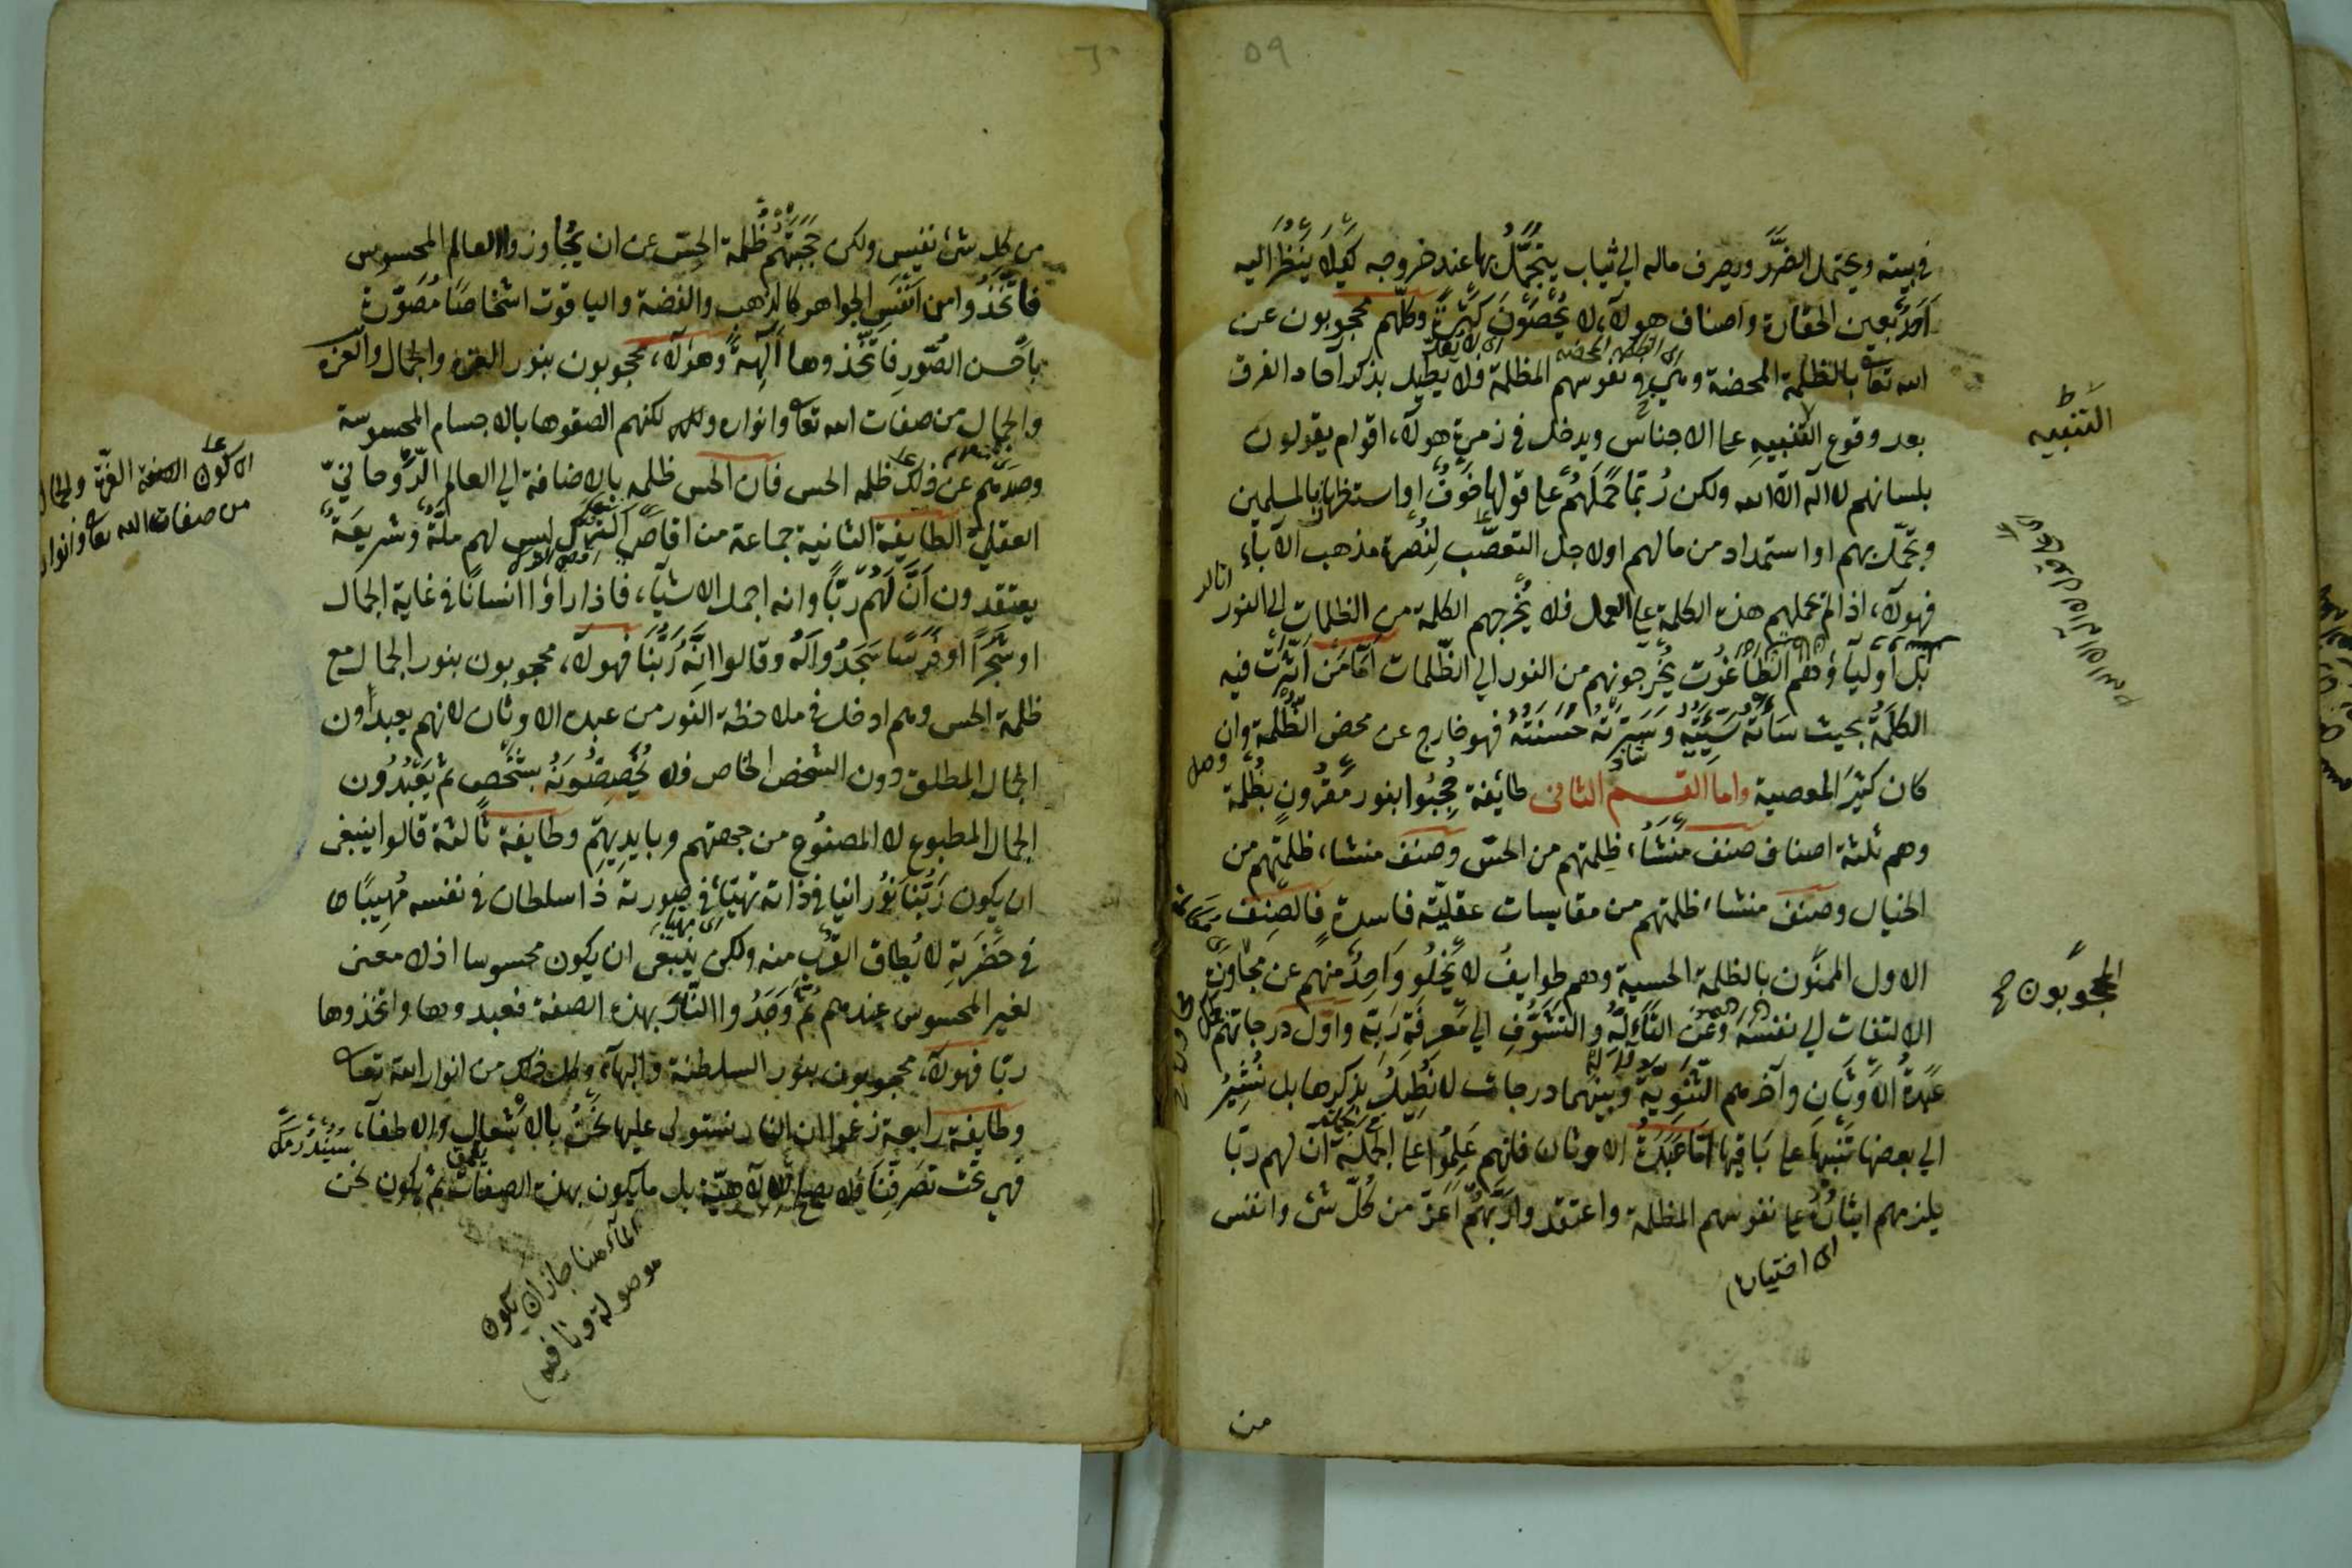 ٥٩
في بيته ويحتمل الضَّرَر ويصرف ماله الي ثياب يتجمَّلُ بها عند خروجه كَيلَا يَنظُرَ اليه
اَحَدٌ بعين الحقارة واصناف هولآء لا يُحصَونَ كَثرَةً وكلّهم محجوبون عن
الله تعا بالظلمة المحضة وهي نفوسهم المظلمة فلا نطيل بذكر آحاد الفرق
بعد وقوع التنبيهِ علي الاجناس ويدخل في زمرة هولآء اقوام يقولون
بلسانهم لا اله الّا الله ولكن رُبّما حَمَلَهُم علي قولها خَوفٌ او استظهار بالمسلمين
وتجمّل بهم او استمداد من مالهم او لاجل التعصّب لِنُصرة مذهب الآباء
فهولآء اذا لم تحملهم هذه الكلمة علي العمل فلا يُخرجهم الكلمة من الظلمات الي النور
بل اَوليَآؤُهم الطَّاغُوت يُخرجونهم من النور الي الظّلمات اَمّا مَن اَثَّرَت فيه
الكلمَةُ بحيث سَآءَتهُ سَيّئتهُ وَسَرَّتهُ حَسَنَتُهُ فهو خارج عن محض الظُّلمة وان
كان كثيرَ المعصية واما القسم الثاني طائفة حُجِبُوا بنور مَقرُونٍ بظُلمة
وهم ثلثة اصناف صنف مَنشَأ، ظلمتهم من الحسّ وصنف منشاء ظلمتهم من
الخيال وصنف منشاء ظلمتهم من مقايسات عقليّة فاسدة فالصّنف
الاول الممنُّون بالظلمة الحسية وهم طوايفُ لا يَخلُو وَاحِدٌ منهم عن مجاوَزة
الالتفات الي نفسه وَعَن التَّأَلُّهِ والتَشَوُّفِ الي مَعرِفَةِ رَبّهِ واوّل درجاتهم
عَبَدةُ الاَوثَانِ وآخرهم الثَّنَوِيّةُ وبينهما درجات لا نُطِيلُ بذكرها بل نُشِيرُ
الي بعضها تَنبِيهًا علي بَاقيها اَمّا عَبَدَةُ الاوثان فانهم عَلِمُوا عَلَي الجُملَةِ ان لهم ربّا
يلزمهم ايثَارُهُ علي نفوسهم المظلمة واعتقدوا رَبَّهُم اَعزّ من كُلّ شئ وانفس
اي اختياره
من
التنبيه
المحجُوبون
٦٠
من كل شئ نفيس ولكن حَجَبَتهُم ظُلمةُ الحِسّ عن ان يُجاوزوا العالم المحسوس
فاتَّخَذُوا من اَنفَس الجواهر كالذهب والفضة والياقوت اشخاصًا مُصَوَّرة
باَحسن الصُّوَر فاتّخذوها آلِهَةً وهؤلآء محجوبون بنور العزة والجمال والعزة
والجمال من صفات الله تعا وانواره ولكن لكنهم الصقوها بالاجسام المحسوسة
وصدهم عن ذلك ظلمة الحس فان الحس ظلمة بالاضافة الي العالم الرُّوحانيّ
العقليّ الطايفة الثانية جماعة من اقاصي الترك ليس لهم ملّةٌ وشريعَةٌ
يعتقدون اَنَّ لَهُم رَبًّا وانه اجمل الاشيآء، فاذا رأوا انسانًا في غاية الجمال
او شَجَرًا او فَرَسًا سَجَدُوا لَهُ وقالوا اِنَّهُ رَبُّنَا فهولآء محجوبون بنور الجمال مع
ظلمة الحس وهم ادخل في ملاحظة النور من عبدة الاوثان لانهم يعبدون
الجمال المطلق دون الشخص الخاص فلا يُخَصِّصُونَهُ بشَخصٍ ثم يَعبُدُون
الجمال المطبوع لا المصنُوع من جهتهم وبايديهم وطايفة ثالثة قالوا ينبغي
ان يكون رَبُّنَا نورانيا في ذاته بَهِيًّا في صورته ذا سلطان في نفسه مُهِيبًا
في حَضرَتِه لا يُطاق القُربُ منه ولكن ينبَغي ان يكون محسوسا اذ لا معني
لغير المحسوس عندهم ثُمَّ وَجَدُوا النَّارَ بهذه الصفة فعبدوها واتخذوها
ربّا فهولآء محجوبون بنور السلطنة والبهآء وكل ذلك من انوار الله تعا
وطايفة رابعة زعموا ان النار نستولي عليها نَحنُ بالاشعَال والاطفآء
فهي تحت تصَرّفِنَا فلا يصلح للالآهيّة بل ما يكون بهذه الصفات ثم يكون نحن
المآء هنا جاز ان يكون
موصولة ونافيه
الاكوان الصفة العزّة والجمال
من صفات الله تعا وانوار